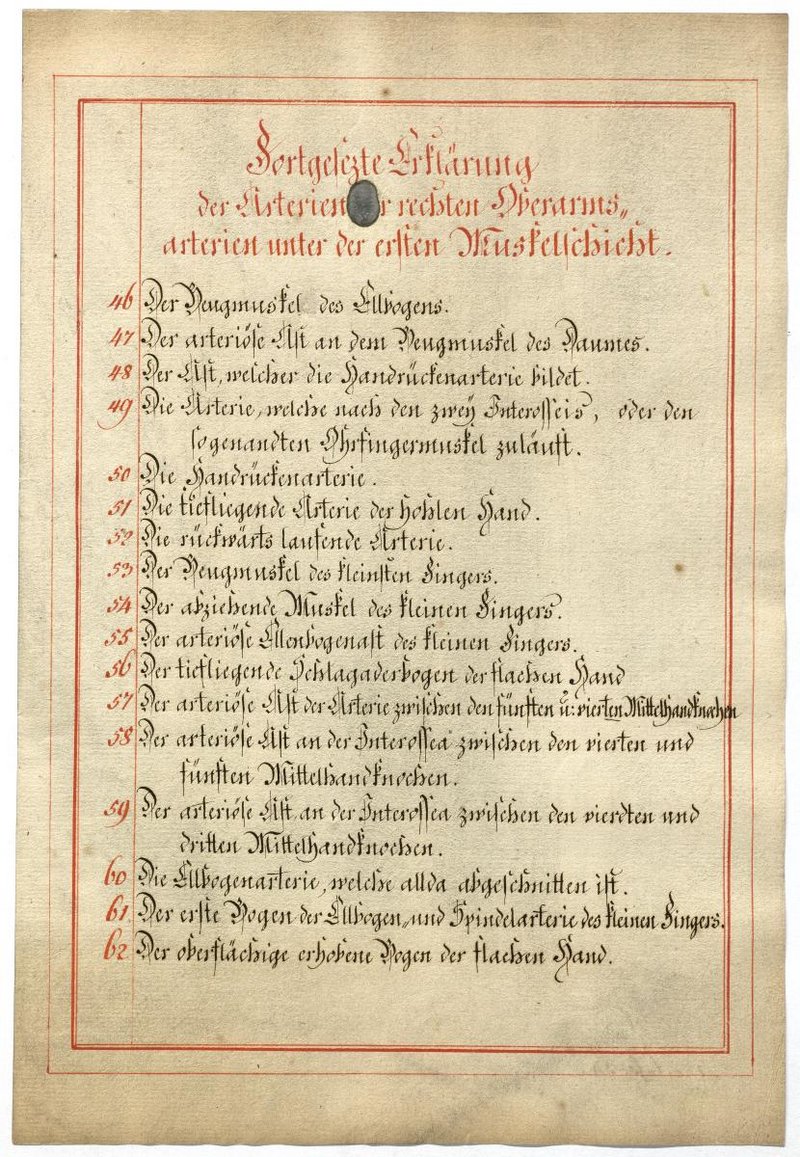 Fortgesezte Erklärung
der Arterien r rechten Oberarms„
arterien unter der ersten Muskelschicht.
46 Der Beugmuskel des Ellbogens.
47 Der arteriöse Ast an dem Beugmuskel des Daumes.
48 Der Ast, welcher die Handrückenarterie bildet.
49 Die Arterie, welche nach den zwey Interosseis, oder den
sogenandten Ohrfingermuskel zuläuft.
50 Die Handrückenarterie.
51 Die tiefliegende Arterie der hohlen Hand.
52 Die rückwärts laufende Arterie.
53 Der Beugmuskel des kleinsten Fingers.
54 Der abziehende Muskel des kleinen Fingers.
55 Der arteriöse Ellenbogenast des kleinen Fingers.
56 Der tiefliegende Schlagaderbogen der flachen Hand
57 Der arteriöse Ast der Arterie zwischen den fünften u: vierten Mittelhandknochen
58 Der arteriöse Ast an der Interossea zwischen den vierten und
fünften Mittelhandknochen.
59 Der arteriöse Ast an der Interossea zwischen den vierdten und
dritten Mittelhandknochen.
60 Die Ellbogenarterie, welche allda abgeschnitten ist.
61 Der erste Bogen der Ellbogen„und Spindelarterie des kleinen Fingers.
62 Der oberflächige erhobene Bogen der flachen Hand.